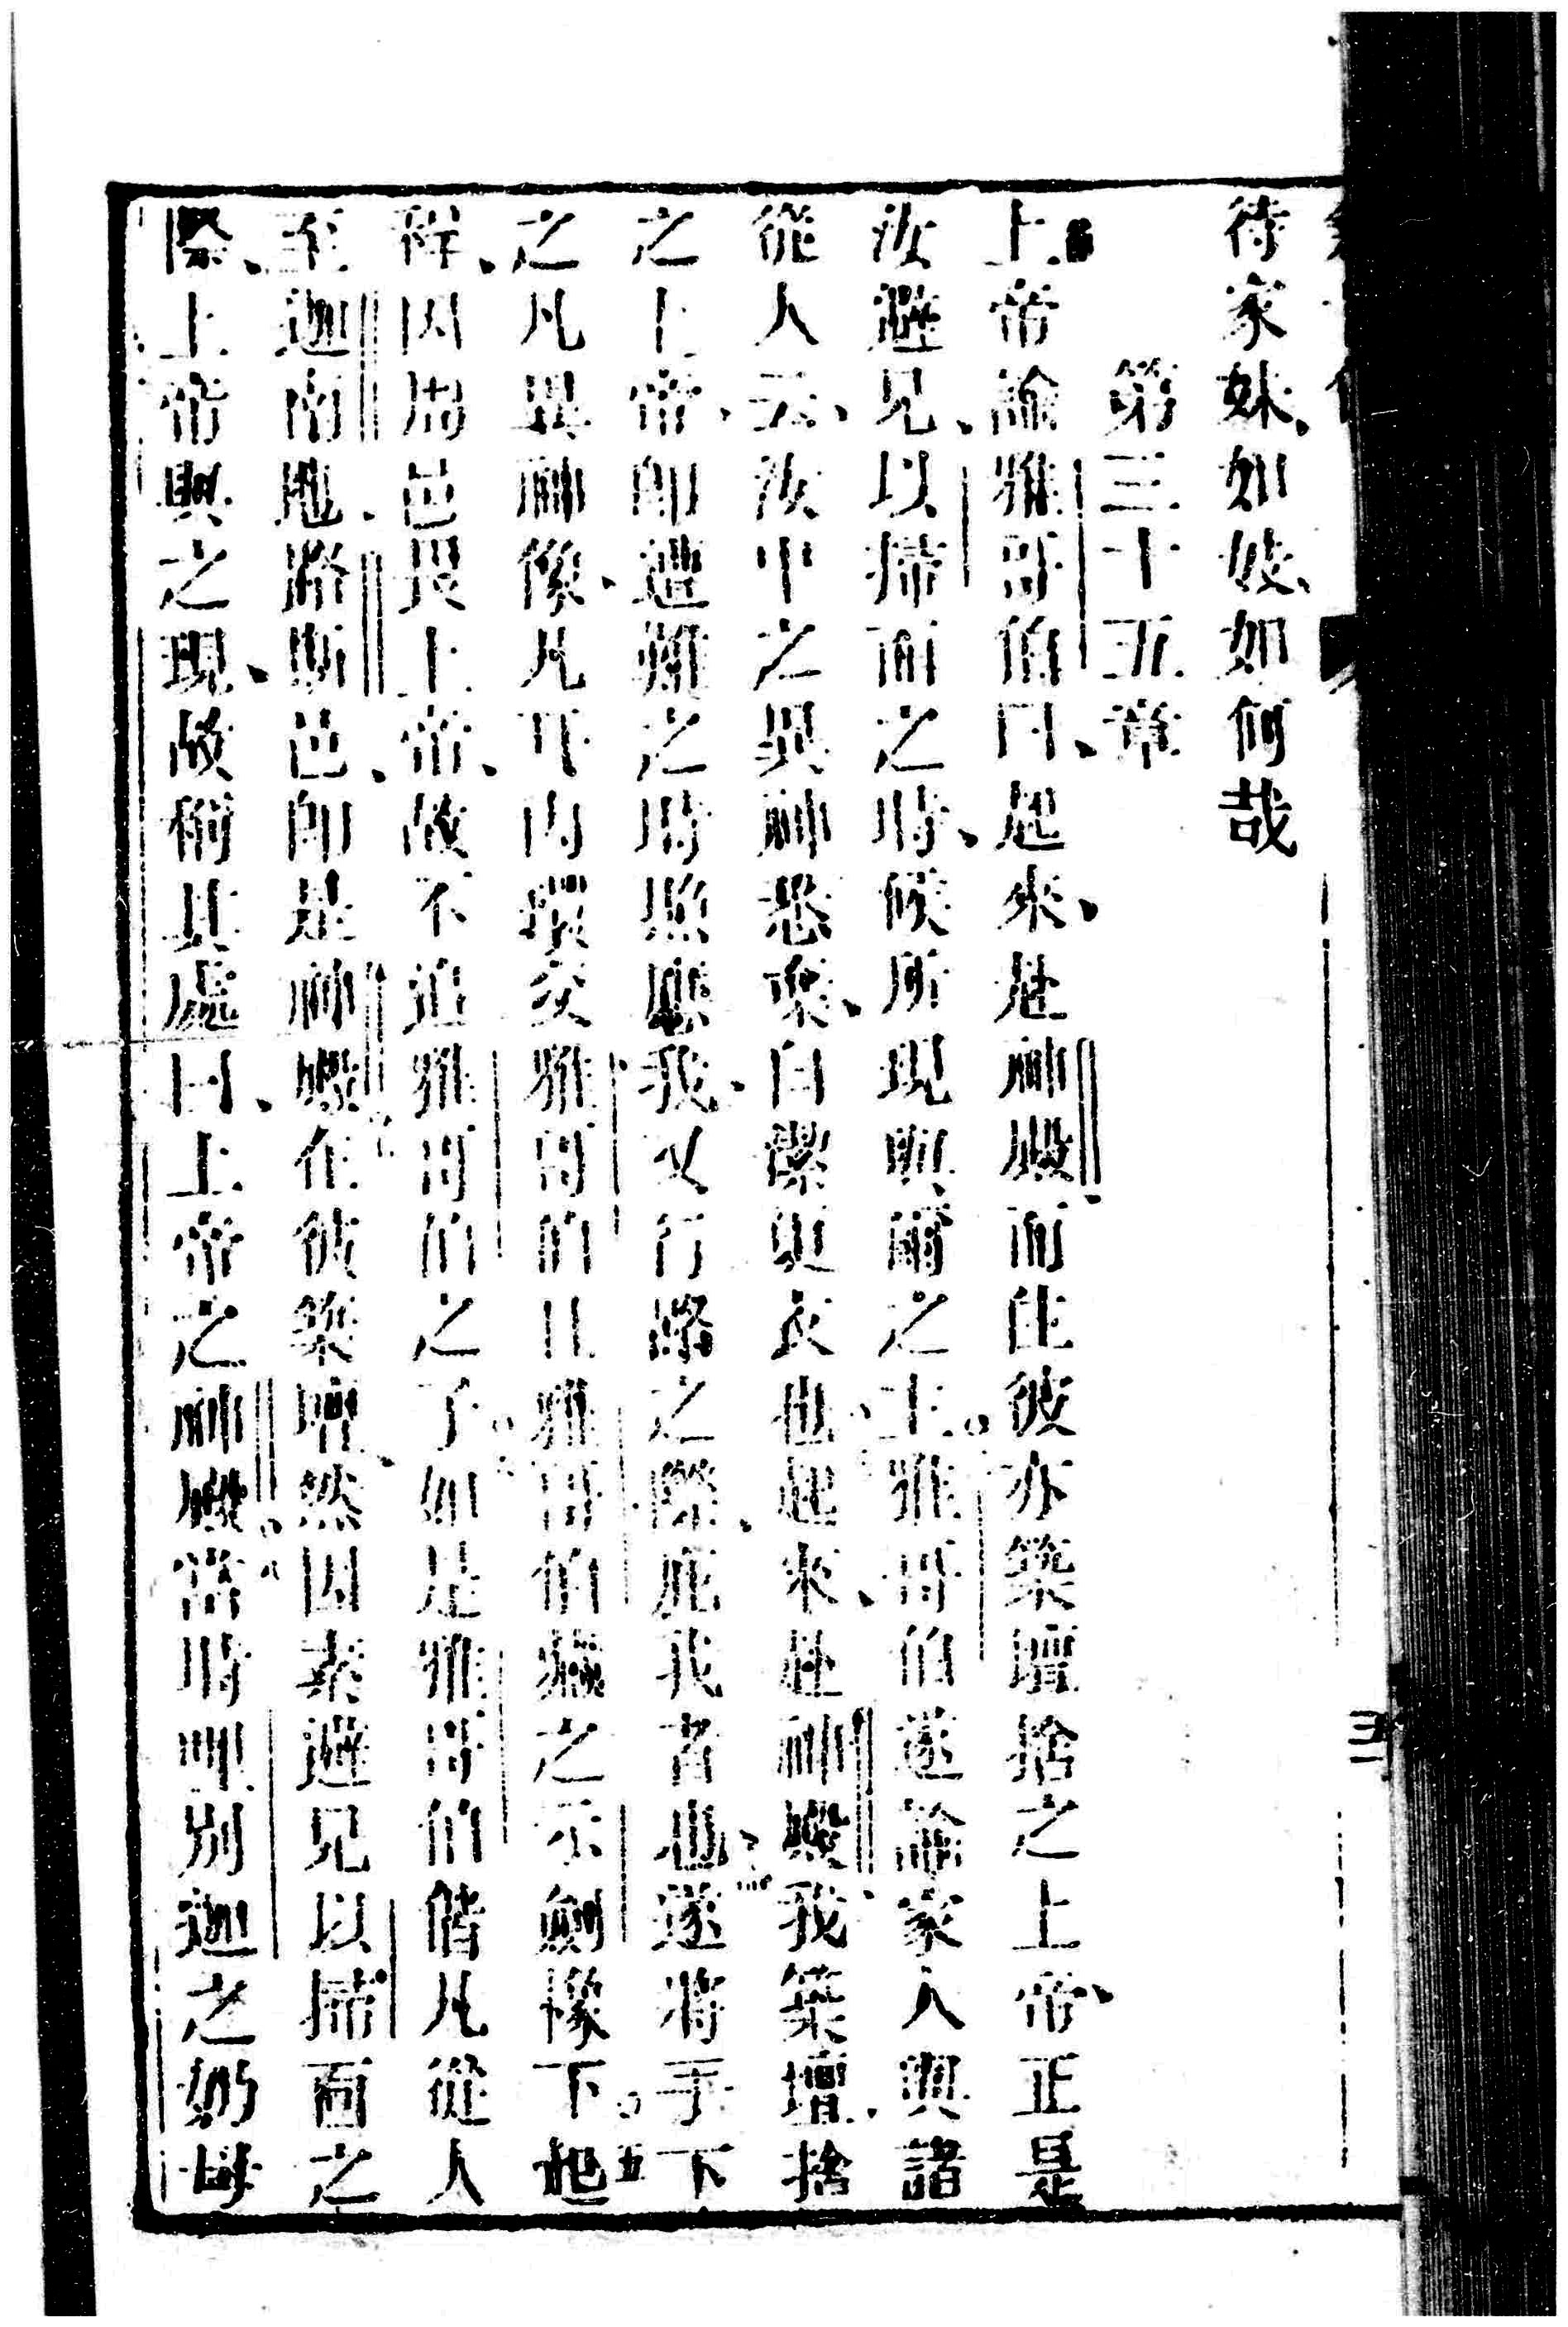 待家妹、如妓、如何哉
第三十五章
上帝諭雅哥伯曰、起來、赴神殿而住彼亦築壇捨之上帝、正是
汝避兄、以掃面之時、候所現與爾之上。雅哥伯遂諭家人與諸
從人云、汝中之異神悉棄、自潔更衣也、起來、赴神殿、我築壇、捨
之上帝、卽遭難之時照應我、又行路之際、庇我者也、遂將手下
之凡異神像、凡耳內環交雅哥伯且雅哥伯藏之示劍橡下。五 他
徃、因周邑畏上帝、故不追雅哥伯之子。如是雅哥伯偕凡從人
至迦南地、路斯邑、卽是神殿在彼築壇、然因素避兄以掃面之
際、上帝與之現、故稱其處曰、上帝之神殿。八當時哩別迦之奶母